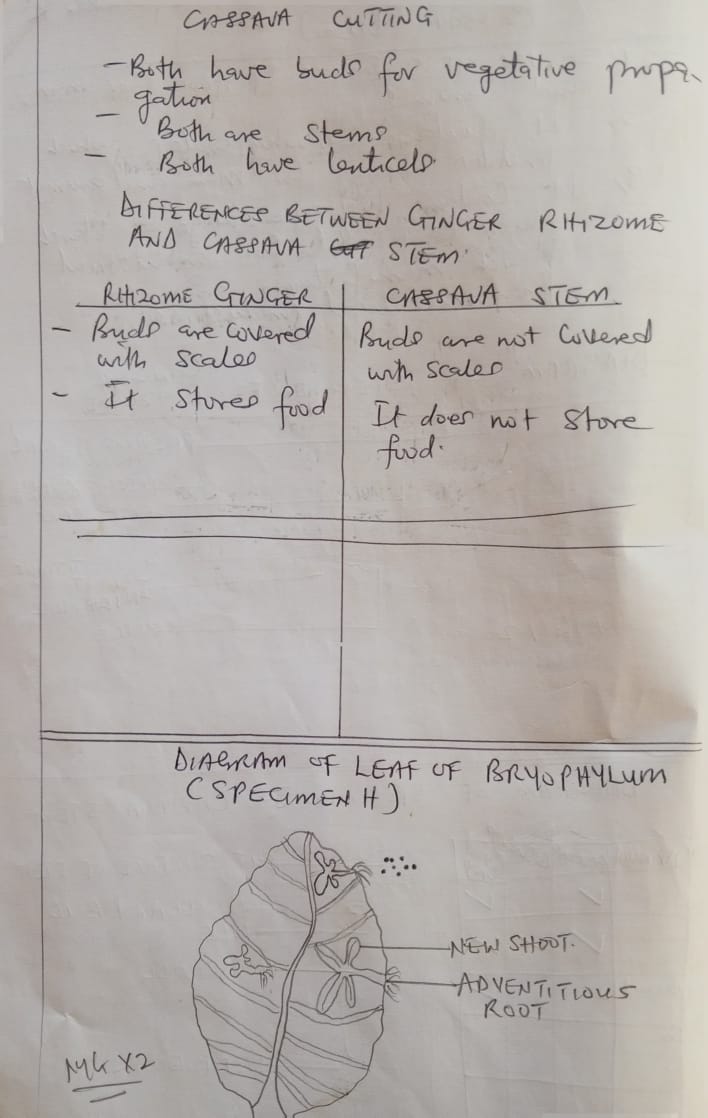 CASSAVA CUTTING
- Both have buds for vegetative propa-
gation
- Both are stems
- Both have lenticels.
DIFFERENCES BETWEEN GINGER RHIZOME
AND CASSAVA STEM.
RHIZOME GINGER
CASSAVA STEM.
- Buds are covered
with scales
Buds are not covered
with scales
- It stores food
It does not store
food.
DIAGRAM OF LEAF OF BRYOPHYLUM
(SPECIMEN H)
NEW SHOOT.
ADVENTITIOUS
ROOT
MG X2